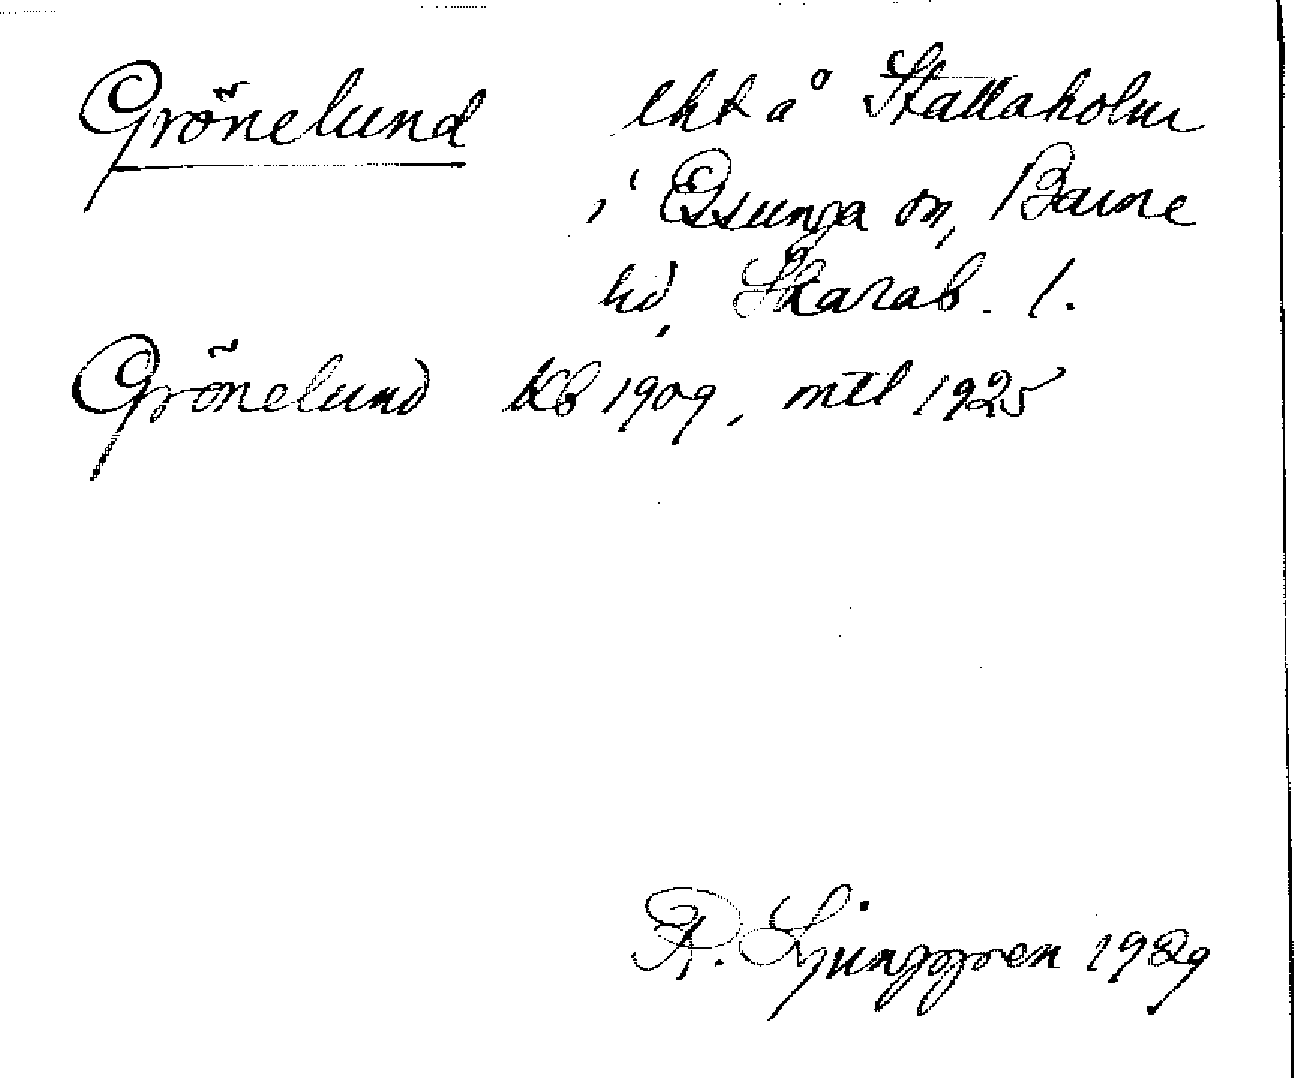 Grönelund lht å Stallaholm
i Essunga sn, Barne
hd, Skarab. l.
Grönelund Kb 1909, mtl 1925
R. Ljunggren 1929